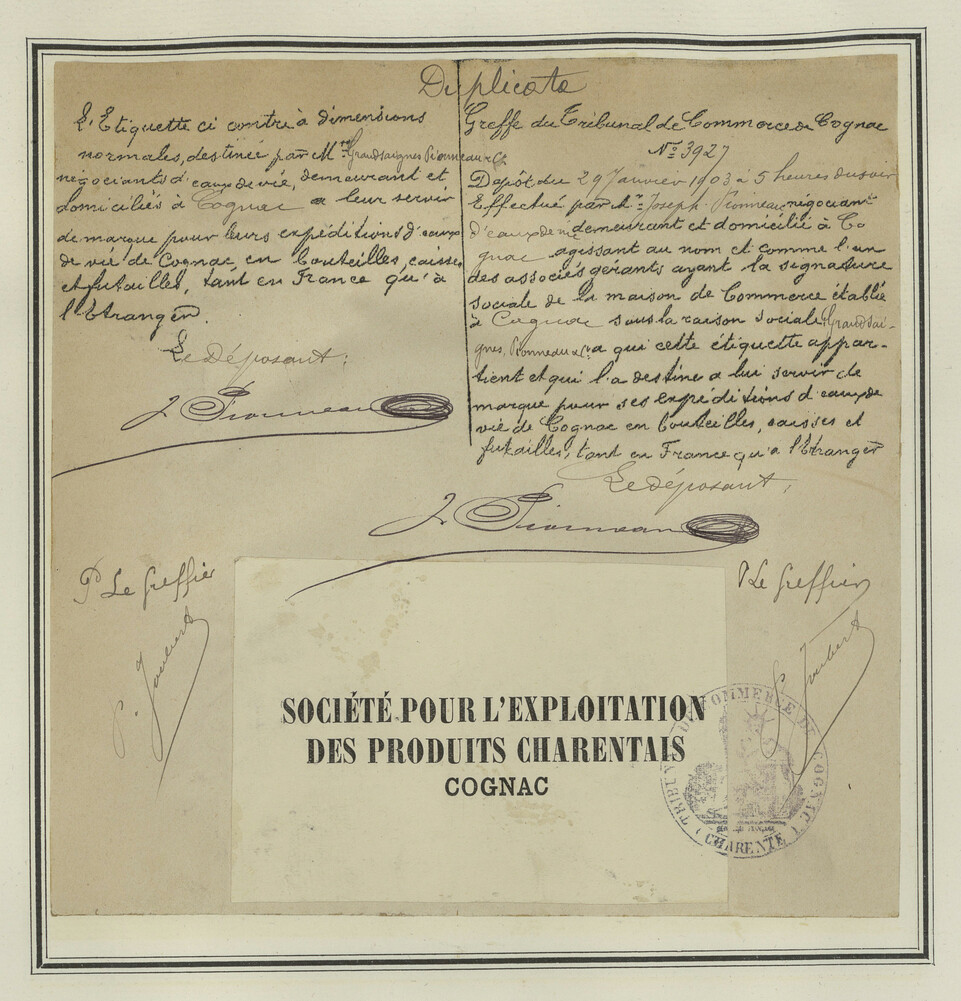 Duplicata
L'Etiquette ci contre à dimensions
normales, destinée par M.rs Grandsaignes Pionneau & Cie
négociants d'eaux de vie, demeurant et
domiciliés à Cognac a leur servir
de marque pour leurs expéditions d'eaux
de vie de Cognac en bouteilles, caisses
et futailles, tant en France qu'à
l'Etranger.
Le déposant:
J. Pionneau
Greffe du Tribunal de Commerce de Cognac
No 3927
Dépôt du 29 Janvier 1903 à 5 heures du soir
Effectué par M.r Joseph Pionneau négociant
d'eaux de vie demeurant et domicilié à Co
gnac agissant au nom et comme l'un
des associés gérants ayant la signature
sociale de la maison de Commerce établie
à Cognac sous la raison sociale Grandsai-
gnes, Pionneau & Cie a qui cette étiquette appar-
tient et qui l'a destiné a lui servir de
marque pour ses expéditions d'eaux de
vie de Cognac en bouteilles, caisses et
futailles, tant en France qu'a l'Etranger
Le déposant:
J. Pionneau
P Le Greffier
P. Joubert
P Le Greffier
P. Joubert
SOCIÉTÉ POUR L'EXPLOITATION
DES PRODUITS CHARENTAIS
COGNAC
TRIBUNAL DE COMMERCE DE COGNAC
(CHARENTE)